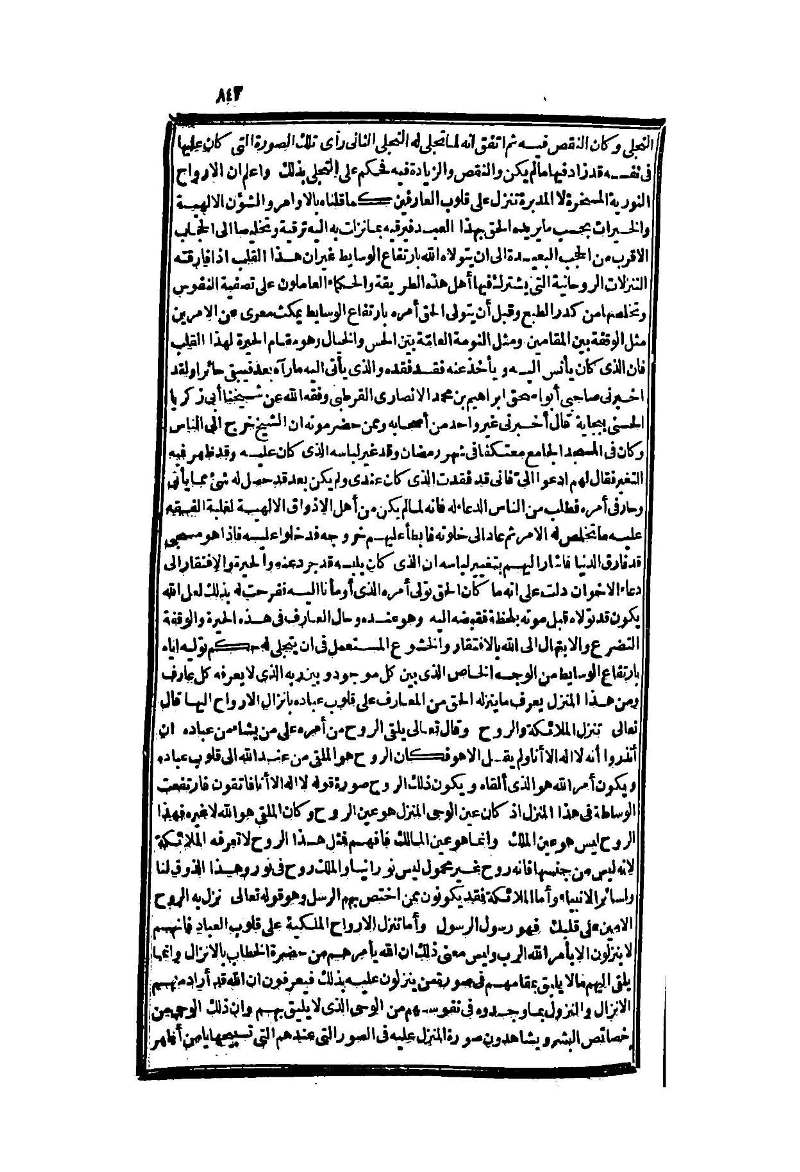 ٨٤٣
التجلى وكان النقص فيه ثم اتفق انه لما تجلى له التجلى الثانى رأى تلك الصورة التى كان عليها
فى نفسه قد زاد فيها ما لم يكن والنقص والزيادة فيه فحكم على التجلى بذلك واعلم ان الارواح
النورية المسخرة لا المدبرة تنزل على قلوب العارفين كما قلناه بالاوامر والشؤن الالهية
والخيرات بحسب ما يريده الحق بهذا العبد فترقيه بما نزلت به اليه ترقية وتخليصا الى الحجاب
الاقرب من الحجب البعيدة الى ان يتولاه الله بارتفاع الوسايط غيران هذا القلب اذا فارقته
التنزلات الروحانية التى يشترك فيها أهل هذه الطريقة والحكماء العاملون على تصفية النفوس
وتخلصها من كدر الطبع وقبل أن يتولى الحق أمره بارتفاع الوسايط يمكث معرى عن الامرين
مثل الوقفة بين المقامين ومثل النومة العامّة بين الحس والخيال وهو مقام الحيرة لهذا القلب
فان الذى كان يأنس اليه ويأخذ عنه فقد فقده والذى يأتى اليه ما رآه بعد فيبقى حائرا ولقد
اخبرنى صاحبى أبو اسحق ابراهيم بن محمد الانصارى القرطبى وفقه الله عن شيخنا أبى زكريا
الحسنى ببجاية قال أخبرنى غير واحد من أصحابه وممن حضر موته ان الشيخ خرج الى الناس
وكان فى المسجد الجامع معتكفا فى شهر رمضان وقد غير لباسه الذى كان عليه وقد ظهر فيه
التغير فقال لهم ادعوا الى فانى قد فقدت الذى كان عندى ولم يكن بعد قد حصل له شئ مما يأتى
وحار فى أمره فطلب من الناس الدعاء له فانه لما لم يكن من أهل الاذواق الالهية لغلبة الفقيه
عليه ما تخلص له الامر ثم عاد الى خلوته فابطأ عليهم خروجه فدخلوا عليه فاذا هو مسجى
قد فارق الدنيا فاشار اليهم بتغيير لباسه ان الذى كان يلبسه قد جرد عنه والحيرة والافتقار الى
دعاء الاخوان دلت على انه ما كان الحق تولى أمره الذى أومأنا اليه نفرحت له بذلك لعل الله
يكون قد تولاه قبل موته بلحظة فقبضه اليه وهو عنده وحال العارف فى هذه الحيرة والوقفة
التضرع والابتهال الى الله بالافتقار والخشوع المستعمل فى ان يتجلى له حكم توليه اياه
بارتفاع الوسايط من الوجه الخاص الذى بين كل موجود وبين ربه الذى لا يعرفه كل عارف
ومن هذا المنزل يعرف ما ينزله الحق من المعارف على قلوب عباده بانزال الارواح اليها قال
تعالى تنزل الملائكة والروح وقال تعالى يلقى الروح من أمره على من يشاء من عباده ان
أنذروا أنه لا اله الا أنا ولم يقل الا هو فكان الروح هو الملقى من عند الله الى قلوب عباده
ويكون أمر الله هو الذى ألقاه ويكون ذلك الروح صورة قوله لا اله الا أنا فاتقون فارتفعت
الوساطة فى هذا المنزل اذ كان عين الوحى المنزل هو عين الروح وكان الملقى هو الله لا غيره فهذا
الروح ليس هو عين الملك وانما هو عين المالك فافهم فمثل هذا الروح لا تعرفه الملائكة
لانه ليس من جنسها فانه روح غير محمول ليس نورانيا والملك روح فى نور وهذا الذوق لنا
ولسائر الانبياء وأما الملائكة فقد يكونون ممن اختص بهم الرسل وهو قوله تعالى نزل به الروح
الامين على قلبك فهو رسول الرسول وأما تنزل الارواح الملكية على قلوب العباد فانهم
لا ينزلون الا بأمر الله الرب وليس معنى ذلك ان الله يأمرهم من حضرة الخطاب بالانزال وانما
يلقى اليهم ما لا يليق بمقامهم فى صورة من ينزلون عليه بذلك فيعرفون ان الله قد أراد منهم
الانزال والنزول بما وجدوه فى نفوسهم من الوحى الذى لا يليق بهم وان ذلك الوحى من
خصائص البشر ويشاهدون صورة المنزل عليه فى الصور التى عندهم التى تسبيحها يا من أظهر